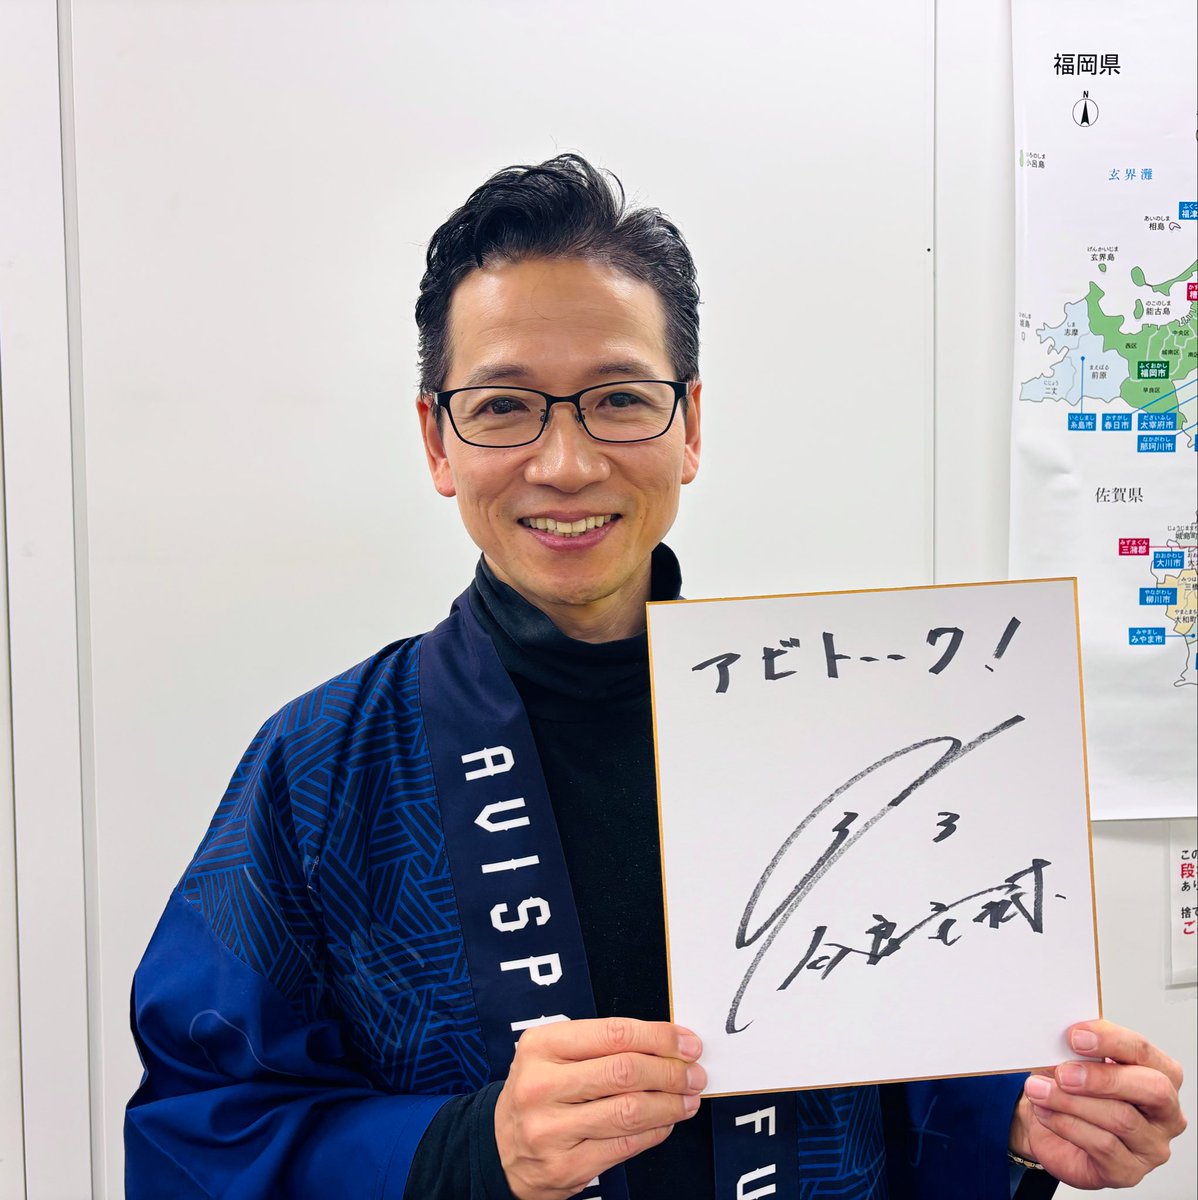 福岡県
N
小呂島
玄界灘
あいのしま
相島
げんかいじま
玄界島
のこのしま
能古島
しま
志摩
西区
中央区
城南区
ふくおかし
福岡市
早良区
まえばる
前原
にじょう
二丈
いとしまし
糸島市
かすがし
春日市
だざいふし
太宰府市
なかがわし
那珂川市
佐賀県
みずまぐん
三潴郡
おおかわし
大川市
やながわし
柳川市
大和町
みやまし
みやま市
アビトーーク!
33
AVISPA
FU